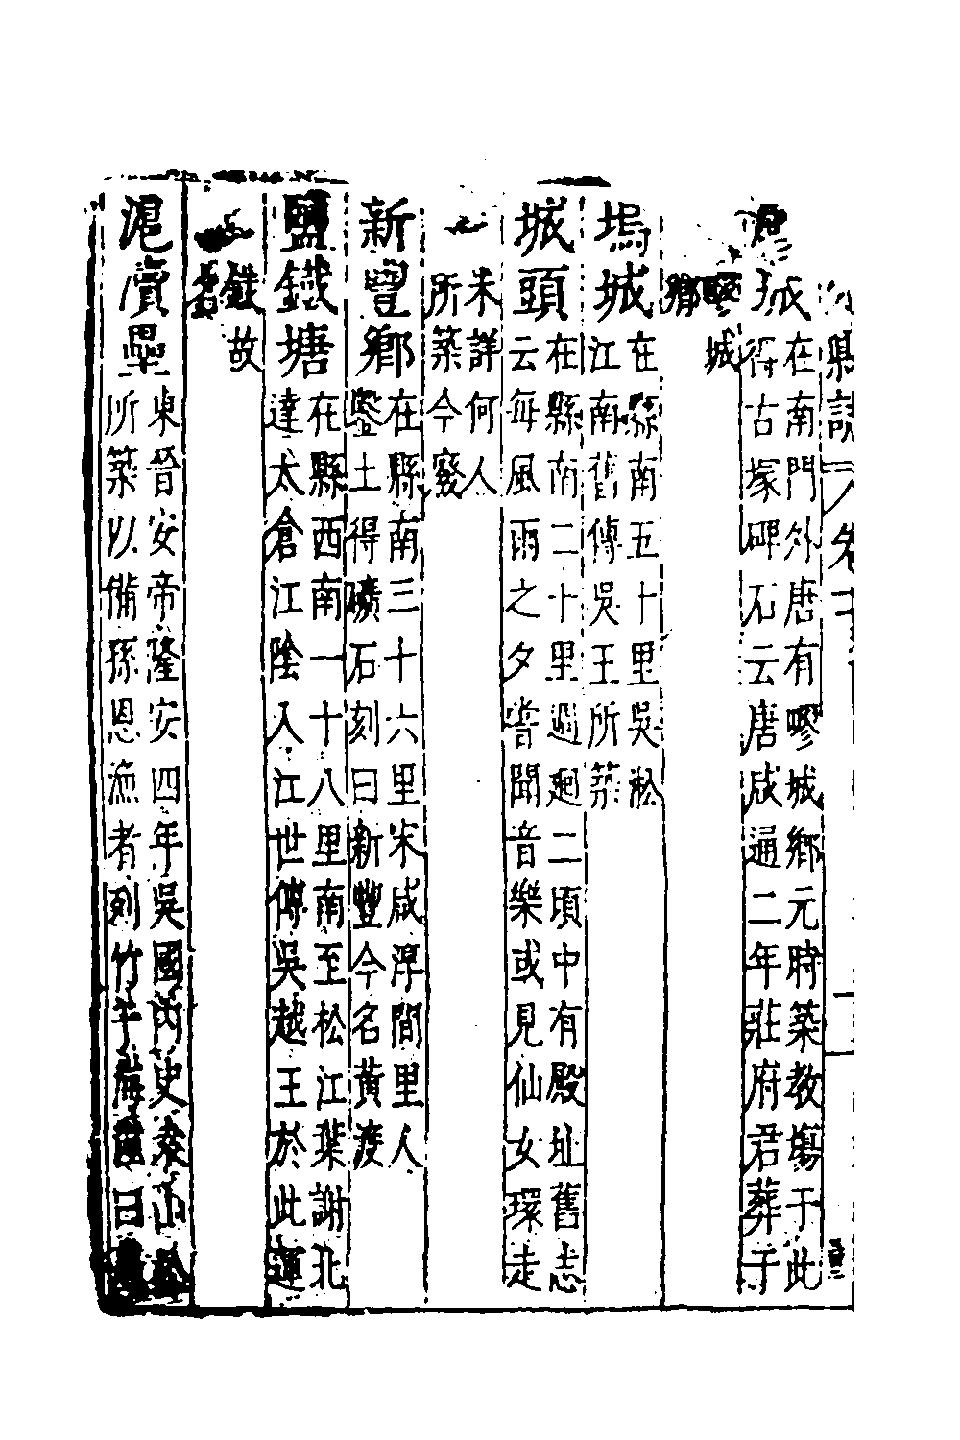 縣誌 卷十
城 在南門外唐有疁城鄉元時築教場于此
得古塚碑石云唐咸通二年莊府君葬于
疁城
鄉
塢城 在縣南五十里吳淞
江南舊傳吳王所築
城頭 在縣南二十里週廻二頃中有殿址舊志
云每風雨之夕嘗聞音樂或見仙女環走
未詳何人
所築今廢
新豐鄉 在縣南三十六里宋咸淳間里人
鑿土得礦石刻曰新豐今名黃渡
鹽鐵塘 在縣西南一十八里南至松江葉謝北
達太倉江陰入江世傳吳越王於此運
鐵故
名
滬瀆壘 東晉安帝隆安四年吳國內史袁山松
所築以備孫恩漁者列竹于海曰